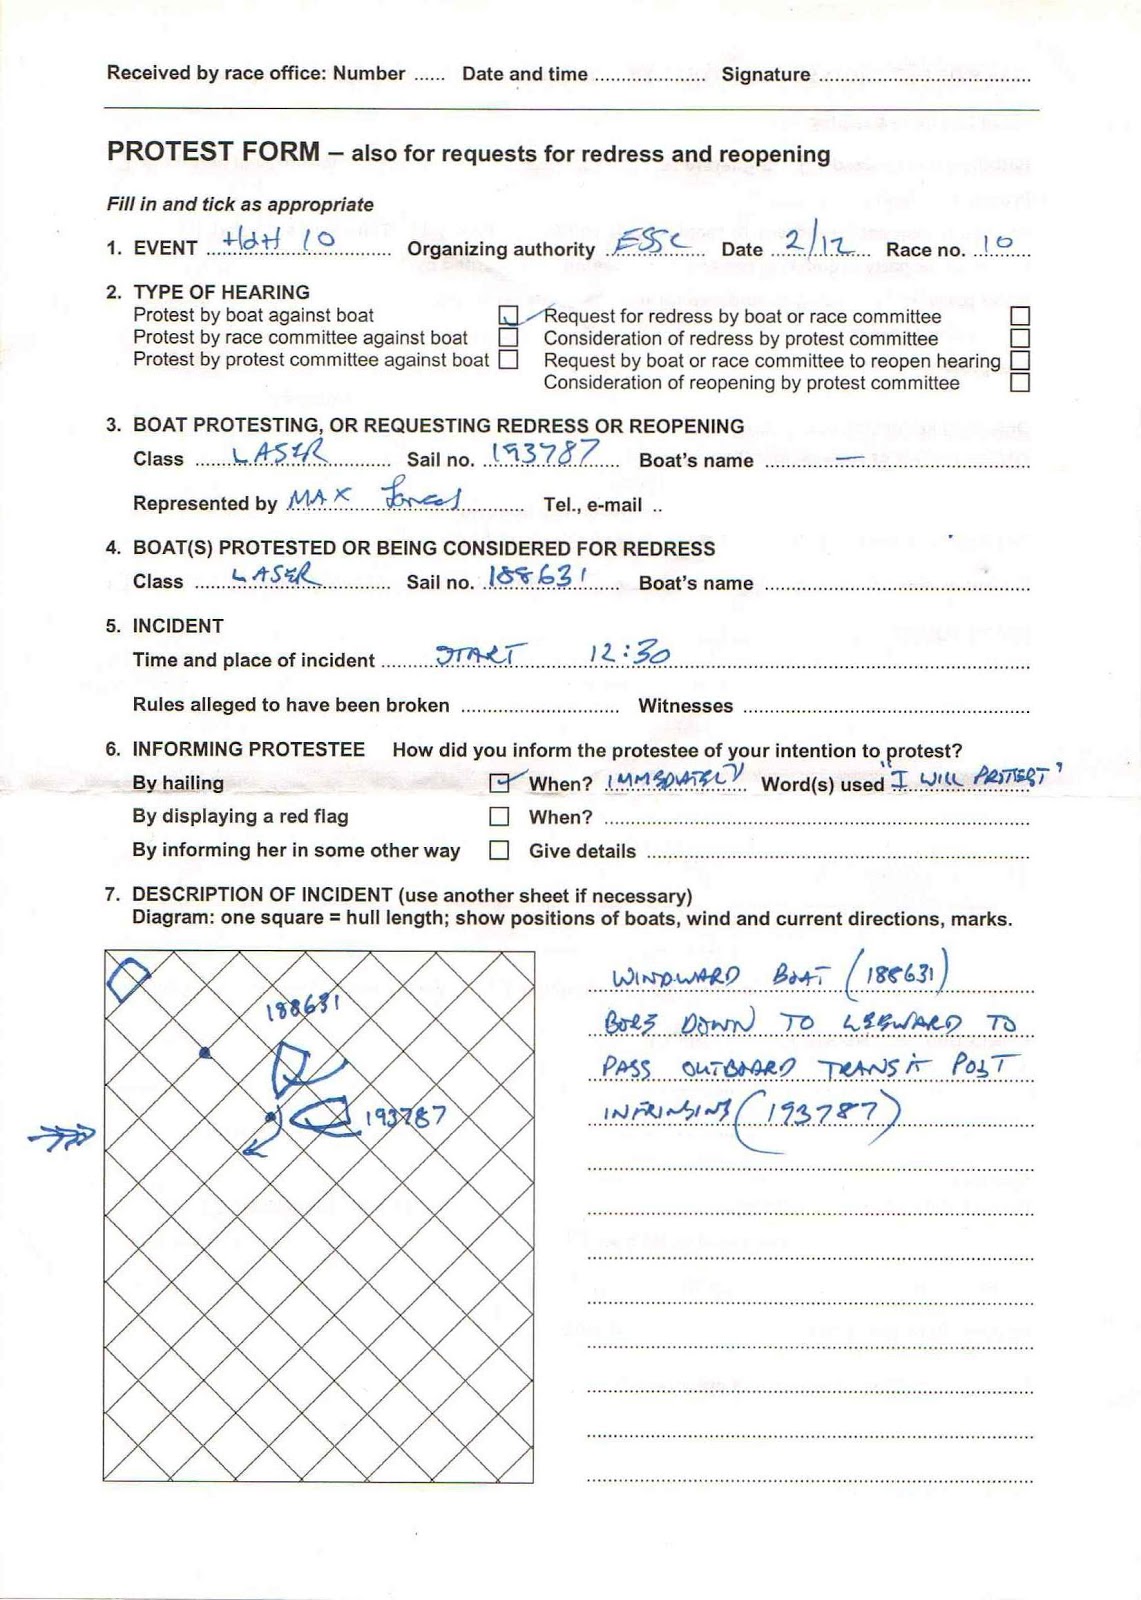 Received by race office: Number ...... Date and time .................... Signature ......................................
PROTEST FORM – also for requests for redress and reopening
Fill in and tick as appropriate
1. EVENT HdH 10 Organizing authority ESSC Date 2/12 Race no. 10
2. TYPE OF HEARING
Protest by boat against boat Request for redress by boat or race committee
Protest by race committee against boat Consideration of redress by protest committee
Protest by protest committee against boat Request by boat or race committee to reopen hearing
Consideration of reopening by protest committee
3. BOAT PROTESTING, OR REQUESTING REDRESS OR REOPENING
Class LASER Sail no. 193787 Boat's name —
Represented by MAX Tel., e-mail ..
4. BOAT(S) PROTESTED OR BEING CONSIDERED FOR REDRESS
Class LASER Sail no. 188631 Boat's name ................
5. INCIDENT
Time and place of incident START 12:30
Rules alleged to have been broken ............................ Witnesses ....................................................
6. INFORMING PROTESTEE How did you inform the protestee of your intention to protest?
By hailing When? IMMEDIATELY Word(s) used "I WILL PROTEST"
By displaying a red flag When? ................
By informing her in some other way Give details ................
7. DESCRIPTION OF INCIDENT (use another sheet if necessary)
Diagram: one square = hull length; show positions of boats, wind and current directions, marks.
188631
193787
WINDWARD BOAT (188631)
BORE DOWN TO LEEWARD TO
PASS OUTBOARD TRANSIT POST
INFRINGING (193787)